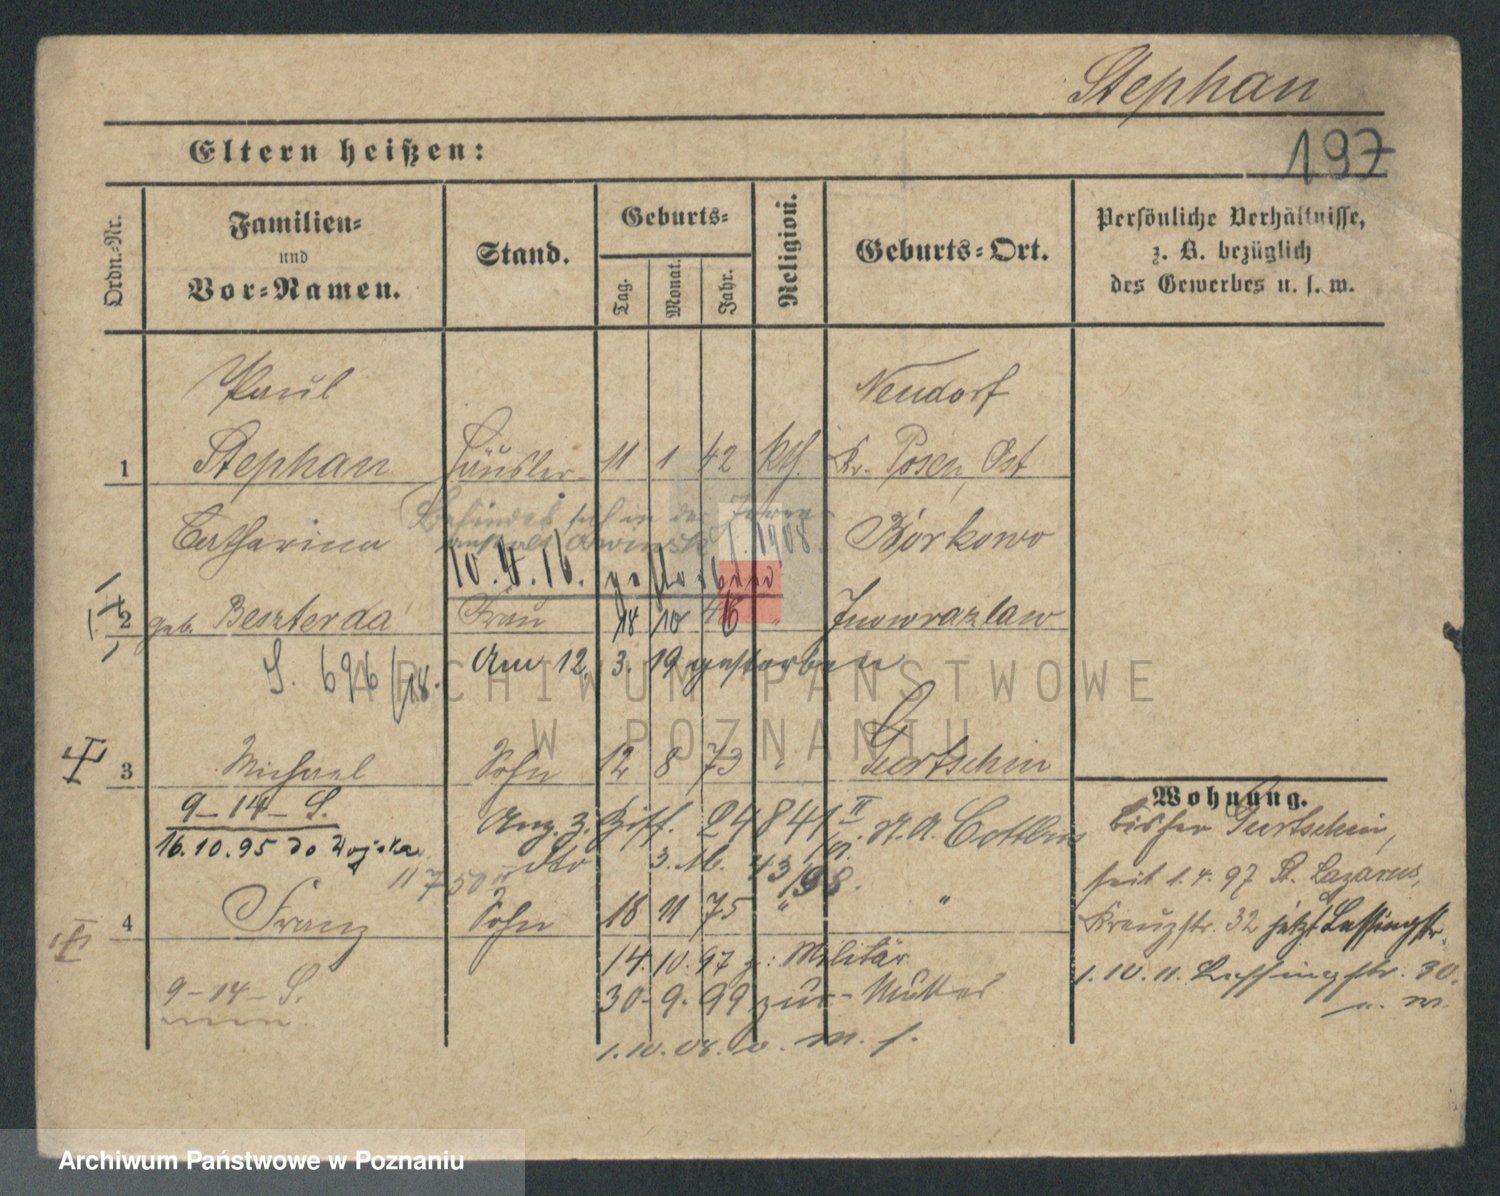 Stephan
197
Eltern heißen:
Ordn.-Nr.
Familien-
und
Vor-Namen.
Stand.
Geburts-
Tag.
Monat.
Jahr.
Religion.
Geburts-Ort.
Persönliche Verhältnisse,
z. B. bezüglich
des Gewerbes u. s. w.
Paul
Neudorf
1 Stephan Häusler 11 1 42 kth. Kr. Posen, Ost
Befindet sich in der Irren-
anstalt 1908.
Catharina
Borkowo
10. 4. 16. gestorben
2 geb. Beszterda Frau 18 10 46 " Inowrazlaw
Am 12. 3. 19 gestorben
S. 696/18.
3 Michael Sohn 12 8 73 " Gurtschin
9-14-S.
16.10.95 do Wojska
Anz. z. 24841 II. St. A. Cottbus
dto 3. M. 43/98.
11750
4 Franz Sohn 18 11 75 " "
14.10.97 z: Militär
9-14-S.
30-9-99 zur Mutter
1.10.08. v. M. f.
Wohnung.
bisher Gurtschin,
seit 1.4.97 St. Lazarus,
Kreuzstr. 32 jetzt Lessingstr.
1.10.11. Lessingstr. 30.
ARCHIWUM PAŃSTWOWE
W POZNANIU
Archiwum Państwowe w Poznaniu